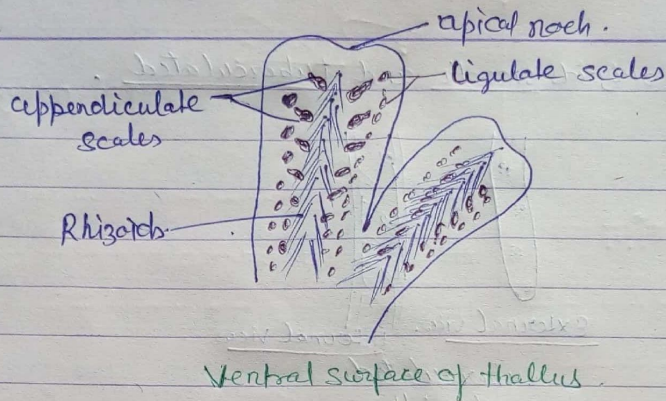 apical noch.
ligulate scales
appendiculate
scales
Rhizoids
Ventral surface of thallus.